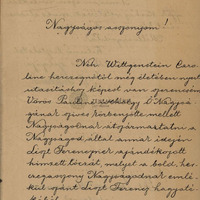 Nagyságos asszonyom!
Néh. Wittgenstein Caro-
line herczegnőtől még életében nyert
utasításhoz képest van szerencsém
Vörös
gának szives közbenjötte mellett
Nagyságodnak átszármaztatni a
Nagyságod által annak idején
Liszt Ferencznek ajándékozott
himzett lóczát, melyet a bold. her-
czegasszony Nagyságodnak emlé-
kül szánt Liszt Ferencz hagyaté-